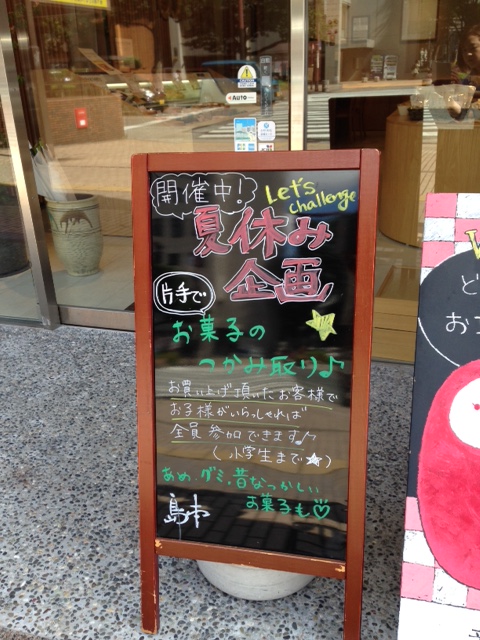 AUTO
開催中!
Let's
challenge
夏休み
企画
片手で
お菓子の
つかみ取り♪
お買い上げ頂いたお客様で
お子様がいらっしゃれば
全員参加できます♪
(小学生まで★)
あめ・グミ・昔なつかしい
お菓子も♡
ど
おこ